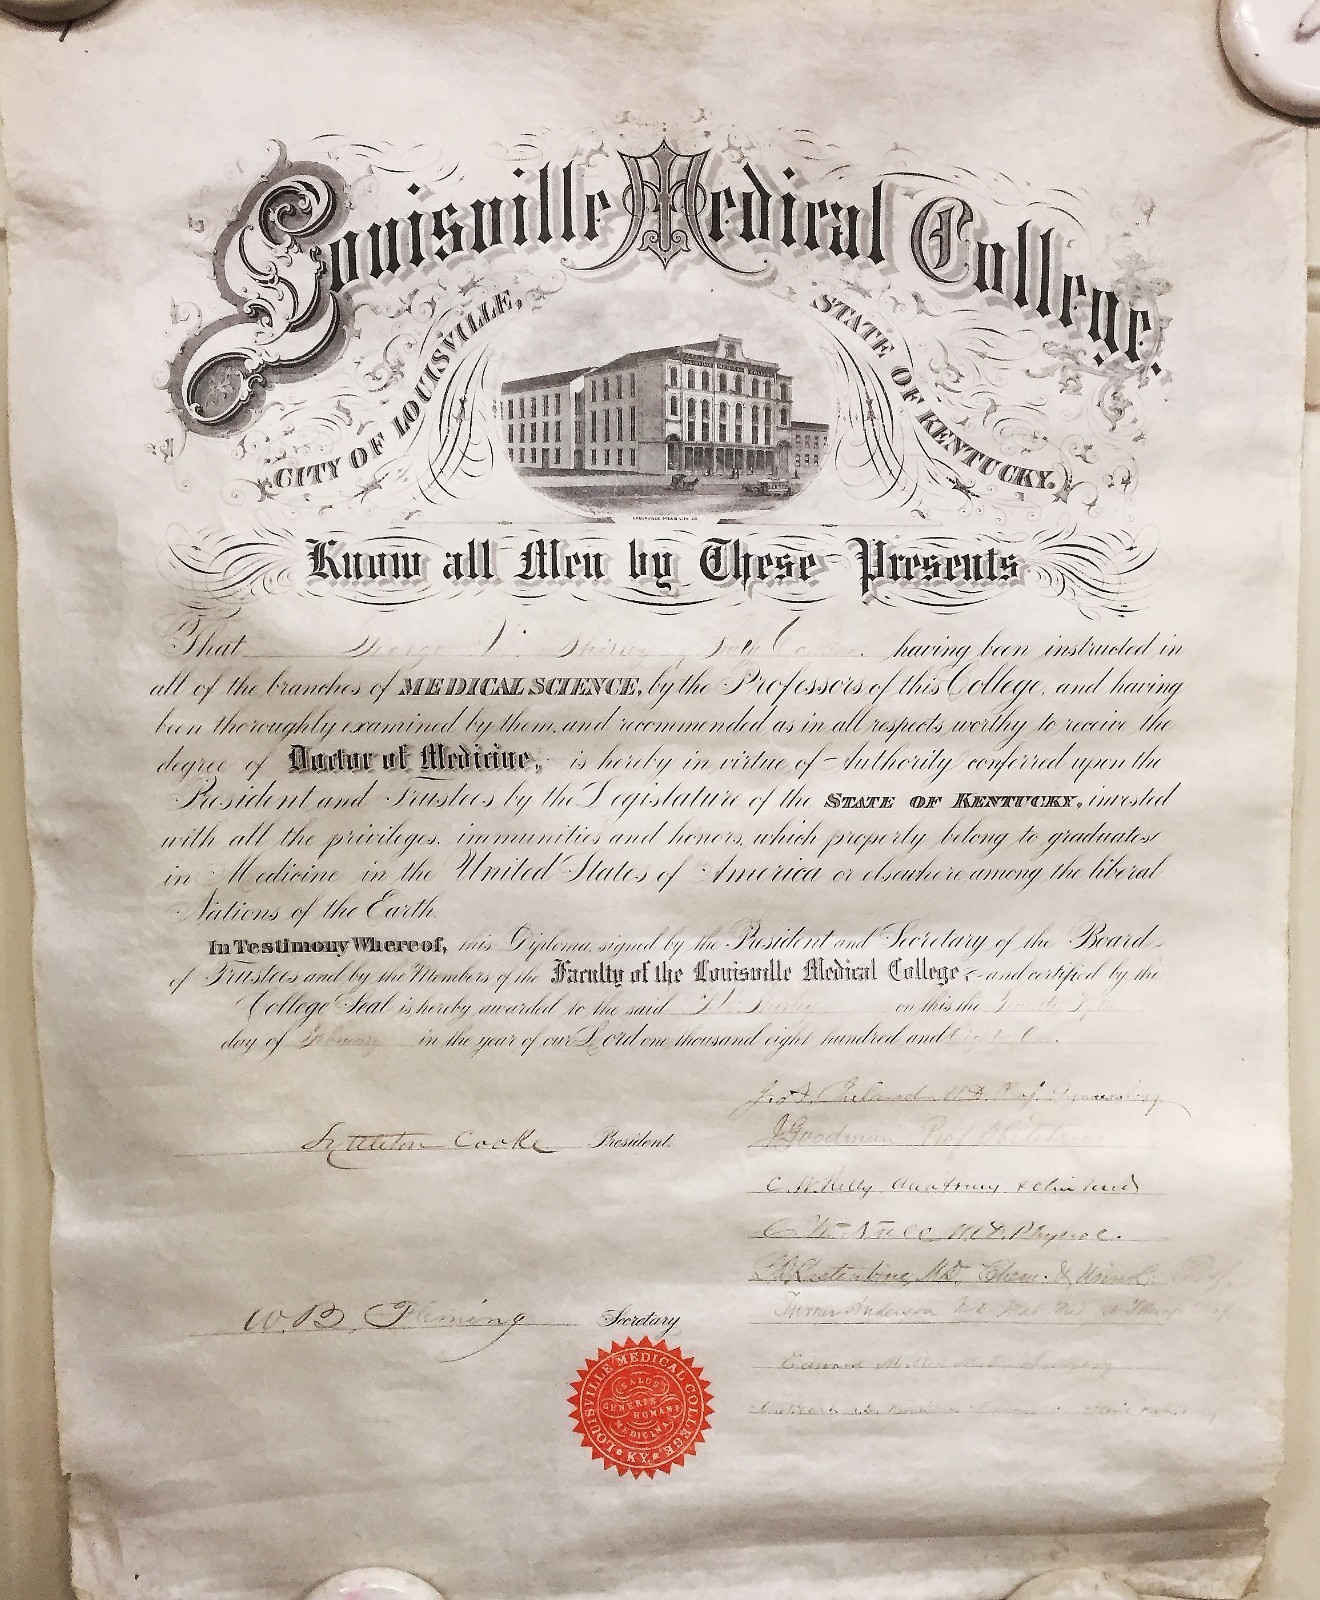 Louisville Medical College.
CITY OF LOUISVILLE, STATE OF KENTUCKY.
LOUISVILLE MEDICAL COLLEGE
Know all Men by These Presents
That George W. Shirley having been instructed in
all of the branches of MEDICAL SCIENCE, by the Professors of this College, and having
been thoroughly examined by them, and recommended as in all respects worthy to receive the
degree of Doctor of Medicine, is hereby in virtue of Authority conferred upon the
President and Trustees by the Legislature of the STATE OF KENTUCKY, invested
with all the privileges, immunities and honors, which properly belong to graduates
in Medicine in the United States of America or elsewhere among the liberal
Nations of the Earth.
In Testimony Whereof, this Diploma, signed by the President and Secretary of the Board
of Trustees and by the Members of the Faculty of the Louisville Medical College, and certified by the
College Seal is hereby awarded to the said Shirley on this the
day of February in the year of our Lord one thousand eight hundred and
M.D. Prof.
Lyttleton Cooke President.
J. Goodman Prof Obstetrics
C. W. Kelly Anatomy
M.D. Physiol.
M.D. Chem. & Prof.
W. B. Fleming Secretary
Turner Anderson
LOUISVILLE MEDICAL COLLEGE
KY.
SALUS
GENERIS HUMANI
MEDICINA